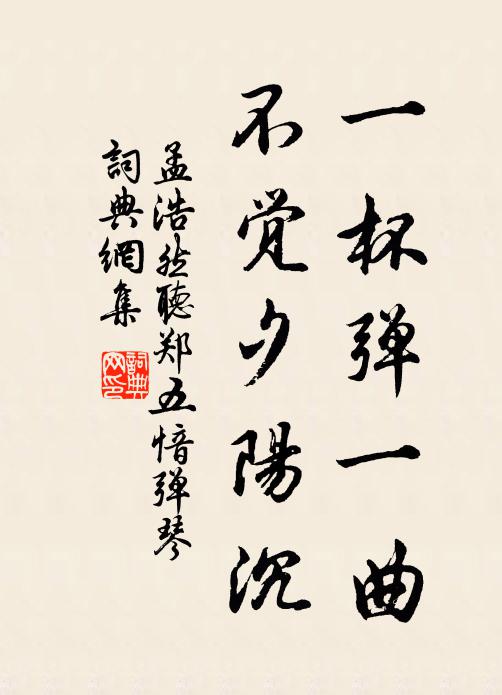 一杯弹一曲
不觉夕陽沉
孟浩然聽郑五愔弹琴
詞典網集
詞典
网印